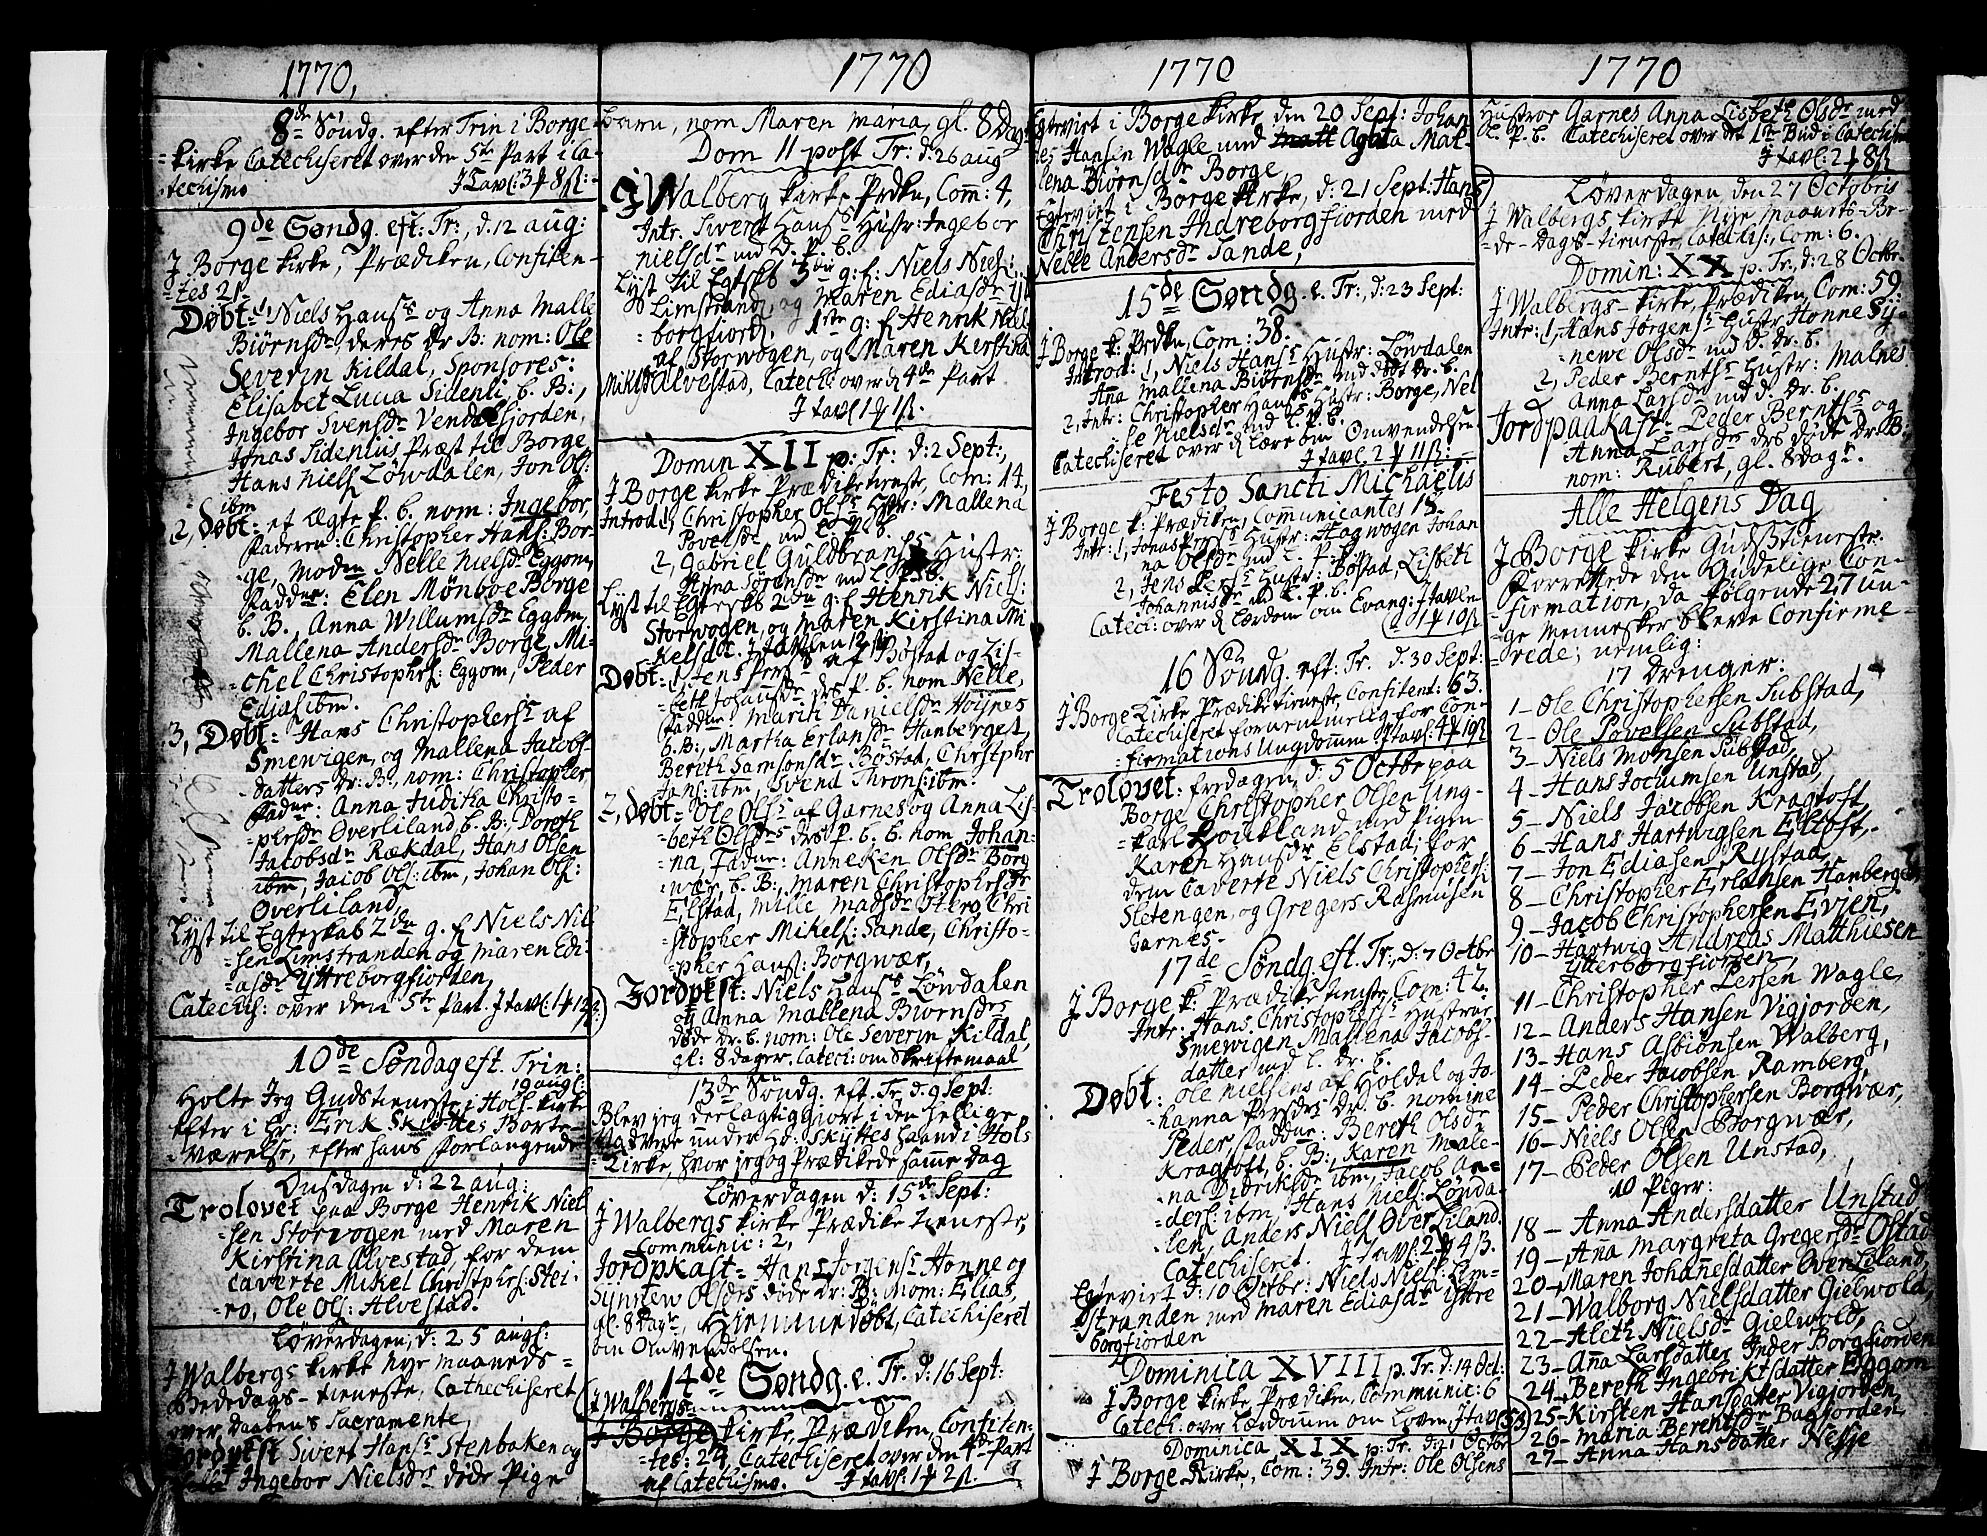 1770,
8de Søndg. efter Trin i Borge
kirke Catechiseret over den 5te Part i Ca-
techismo J Tavl: 3 # 8 ß:
9de Søndg. eft: Tr:, d: 12 aug:
J Borge kirke, Prædiken, Confiten-
tes 21
Døbt: 1, Niels Hansens og Anna Malle
Biørnsdr, deres dr B: nom: Ole
Severin Kildal, Sponsores:
Elisabet Lucia Sidenli b. B:,
Ingebor Svensdr Vendelsfjorden,
Jonas Sidenius Præst til Borge,
Hans Niels: Løwdalen, Jon Ols:
ibm
2, Døbt: et Ægte P. b. nom: Ingebor,
Faderen: Christopher Hans: Bor-
ge, Modn Nelle Nielsdr Eggom,
Faddr: Elen Mønboe Borge
b. B., Anna Willumsdr Eggom,
Mallena Andersdr Borge, Mi-
chel Christophers: Eggom, Peder
Edias: ibm.
3, Døbt: Hans Christophers: af
Smewigen, og Mallena Jacobs-
datters Dr. B., nom: Christopher,
Fadr: Anna Juditha Christo-
phersdr Overliland, b. B:, Doreth
Jacobsdr Rækdal, Hans Olsen
ibm, Jacob Ols: ibm, Johan Ols:
Overliland,
Lyst til Egteskab 2den g. f Niels Niel
sen Limstranden og Maren Edi-
asdr Yttreborgfiorden,
Catechis: over den 5te Part. J tavl: 1 # 12
10de Søndag eft. Trin:
19 aug:
Holte Jeg Gudstieneste i Hols kirke
efter i Hr: Erik Skyttes Borte-
værelse, efter hans Forlangende
Onsdagen d: 22 aug:
Trolovet paa Borge Henrik Niel
sen Storvogen med Maren
Kirstina Alvestad, for dem
caverte Mikel Christophers: Stei-
ro, Ole Ols: Alvestad.
Løverdagen, d: 25 aug:
J Walbergs kirke nye maaneds-
Bededags-tieneste, Cathechiseret
over Daabens Sacramente,
Jordpkst Swert Hans: Stenbaken og
Ingebor Nielsdrs døde Pige
1770
barn, nom Maren Maria, gl. 8 Dage
Dom 11 post Tr: d: 26 aug
J Walberg kirke Prdkn, Com: 4,
Intr. Swert Hans: Hustr: Ingebor
Nielsdr md D. P. b.
Lyst til Egtskb 3die g: f: Niels Niels:
Limstrand, og Maren Ediasdr Ytr
borgfiord, 1ste g: f Henrik Niels
af Storwogen, og Maren Kerstina
Mikelsd Alvestad, Catech: over d 4de Part
J tavl 1 # 1 ß.
Domin XII p: Tr: d: 2 Sept:,
J Borge kirke Prædiketieneste, Com: 14,
Introd: 1, Christopher Ols: Hstr: Mallena
Povelsdr
2, Gabriel Guldbrans: Hustr:
Anna Sørensdr md
Lyst til Egteskb 2den g: f Henrik Niels:
Storwogen, og Maren Kirstina Mi
kelsdr. J tavlen 12 ß
Døbt: 1, Jens Pers: af Bøstad og Lis-
beth Johansdr drs P. b. nom Nelle,
Faddr Marit Danielsdr Høynes
b. B:, Martha Erlansdr Hanberget,
Bereth Samsonsdr Bøstad, Christphr
Jans: ibm, Svend Throns: ibm.
2, døbt: Ole Ols: af Garnes og Anna Lis-
beth Olsdrs drs P. b. nom Johan-
na, Fadr: Anneken Olsdr Borg
wær, b. B:, Maren Christophrsdr
Elstad, Mille Madsdr Hero, Chri
stopher Mikels: Sande, Christo-
pher Hans: Borgwær,
Jordpkst: Niels Hans: Løwdalen
og Anna Mallena Biørnsdrs
døde dr. b. nom: Ole Severin Kildal,
gl: 8 dager. Catech: om Skriftemaal
13de Søndg. eft. Tr: d. 9 Sept:
Blev jeg deelagtiggiort i den hellige
Nadvere under Hr: Skyttes haand i Hols
Kirke, hvor jeg og Prædikede samme dag
Løverdagen d: 15de Sept:
J Walbergs kirke Prædike tieneste,
Communic: 2,
Jordpkast- Hans Jørgens: Hønne og
Synnew Olsdrs døde dr: B: nom: Elias,
gl: 8 Dagr, Hiemmedøbt, Catechiseret
om Omvendelsen.
14de Søndg. e. Tr: d: 16 Sept:
J Walbergs
J Borge kirke, Prædiken, Confiten-
tes: 24, Catechiseret over den 4de Part
af Catechismo. J tavl: 1 # 2 ß.
1770
Egtevirt i Borge kirke, den 20 Sept: Johan
nes Hansen Wagle med Matt Agata Mal-
lena Biørnsdr Borge,
Egtevirt i Borge kirke, d: 21 Sept: Hans
Christensen Indreborgfiorden med
Nelle Andersdr Sande,
15de Søndg. e. Tr:, d: 23 Sept:
J Borge k: Prdkn, Com: 38.
Introd: 1, Niels Hans: Hustr: Løwdalen
Aña Mallena Biørnsdr md dødt dr. b.
2, Intr: Christopher Hans: Hustr: Borge, Nel
le Nielsdr md L. P. b.
Catechiseret over d Lære om Omvendelsen
J tavl 2 # 11 ß:
Festo Sancti Michaelis
J Borge k: Prædiken, Communicantes 15
Intr: 1, Jonas Pers: Hustr: Hagwogen Johan
na Olsdr md L. P. b.
2, Jens Pers: Hustr: Bøstad, Lisbeth
Johannisdr md L. P. b.
Catech: over d Lærdom om Evang: J tavlen
1 # 10 ß
16 Søndg. eft: Tr. d: 30 Sept:
J Borge Kirke Prædiketieneste, Confitent: 63.
Catechiseret fornemmelig for Con-
firmations Ungdommen J tavl: 4 # 19 ß
Trolovet: fredagen, d: 5 Octbr paa
Borge Christopher Olsen Ung-
karl Houkland med Pigen
Karen Hansdr Elstad; for
dem Caverte Niels Christophers:
Sletengen, og Gregers Rasmusen
Garnes.
17de Søndg. eft. Tr:, d: 7 Octbr
J Borge k: Prædike tieneste, Com: 42.
Intr: Hans Christophers: Hustrue
Smewigen Mallena Jacobs-
datter md L. dr. b.
Døbt: Ole Nielsens af Holdal og Jo-
hanna Persdrs dr. b. nomine
Peder, Faddr: Bereth Olsdr
Kragtoft, b. B:, Karen Male-
na Didriksdr ibm, Jacob An-
ders: ibm, Hans Niels: Lønda-
len, Anders Niels: Over Liland.
Catechiseret. J tavl: 2 # 4 ß.
Egtevirt d: 10 Octbr: Niels Niels: Lim-
stranden med Maren Ediasdr Yttre
borgfiorden
Dominica XVIII p. Tr: d: 14 Oct:
J Borge kirke, Prædiken, Communic: 6
Catech: over Lærdomen om Loven, J tavl:
Dominica XIX p: Tr. d: 21 Octbr
J Borge Kirke, Com: 39. Intr: Ole Olsens
1770
Hustroe Garnes Anna Lisbeth Olsdr med
L. P. b. Catechiseret over det 1te Bud i Catechismo
J tavl: 2 # 8 ß
Løverdagen den 27 Octobris
J Walbergs kirke Nye Maaneds-Be-
de-Dags-tieneste, Catechis:, Com: 6.
Domin: XX p. Tr:, d: 28 Octbr.
J Walbergs-kirke, Prædiken, Com: 59
Intr: 1, Hans Jørgens: Hustr Hønne Sy-
newe Olsdr md D. dr. b.
2, Peder Bernts: Hustr: Malnes
Anna Larsdr md d. dr. b.
Jordpaakast- Peder Bernts: og
Anna Larsdrs drs døde dr. B:
nom: Rubert, gl. 8 dagr.
Alle Helgens Dag
J Borge kirke Gudstieneste
Forrettede den Gudelige Con-
firmation, da følgende 27 un-
ge Mennesker bleve Confirme-
rede; nemlig:
17 Drenger:
1- Ole Christophersen Substad,
2- Ole Povelsen Substad,
3- Niels Monsen Substad,
4- Hans Jocumsen Unstad,
5- Niels Jacobsen Kragtoft,
6- Hans Hartvigsen Eltoft,
7- Jon Ediasen Rystad,
8- Christopher Erlansen Hanberget
9- Jacob Christophersen Evjen,
10- Hartwig Andreas Matthiesen
Ytterborgfiorden,
11- Christopher Persen Wagle,
12- Anders Hansen Vigjorden,
13- Hans Asbiønsen Walberg,
14- Peder Jacobsen Ramberg,
15- Peder Christophersen Borgwær,
16- Niels Olsen Borgwær,
17- Peder Olsen Unstad,
10 Piger:
18- Anna Andersdatter Unstad
19- Aña Margrita Gregersdr Olstad
20- Maren Johanesdatter Over Liland,
21- Walborg Nielsdatter Gielwold,
22- Aleth Nielsdr Gielwold,
23- Aña Larsdatter Inder Borgfiorden
24- Bereth Ingebriktsdatter Eggom
25- Kirsten Hansdatter Vigjorden,
26- Maria Berentsdr Bagjorden,
27- Anna Hansdatter Nesje